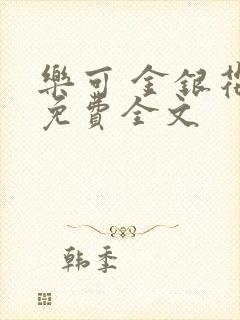 樂可 金銀花
免費全文
韩季